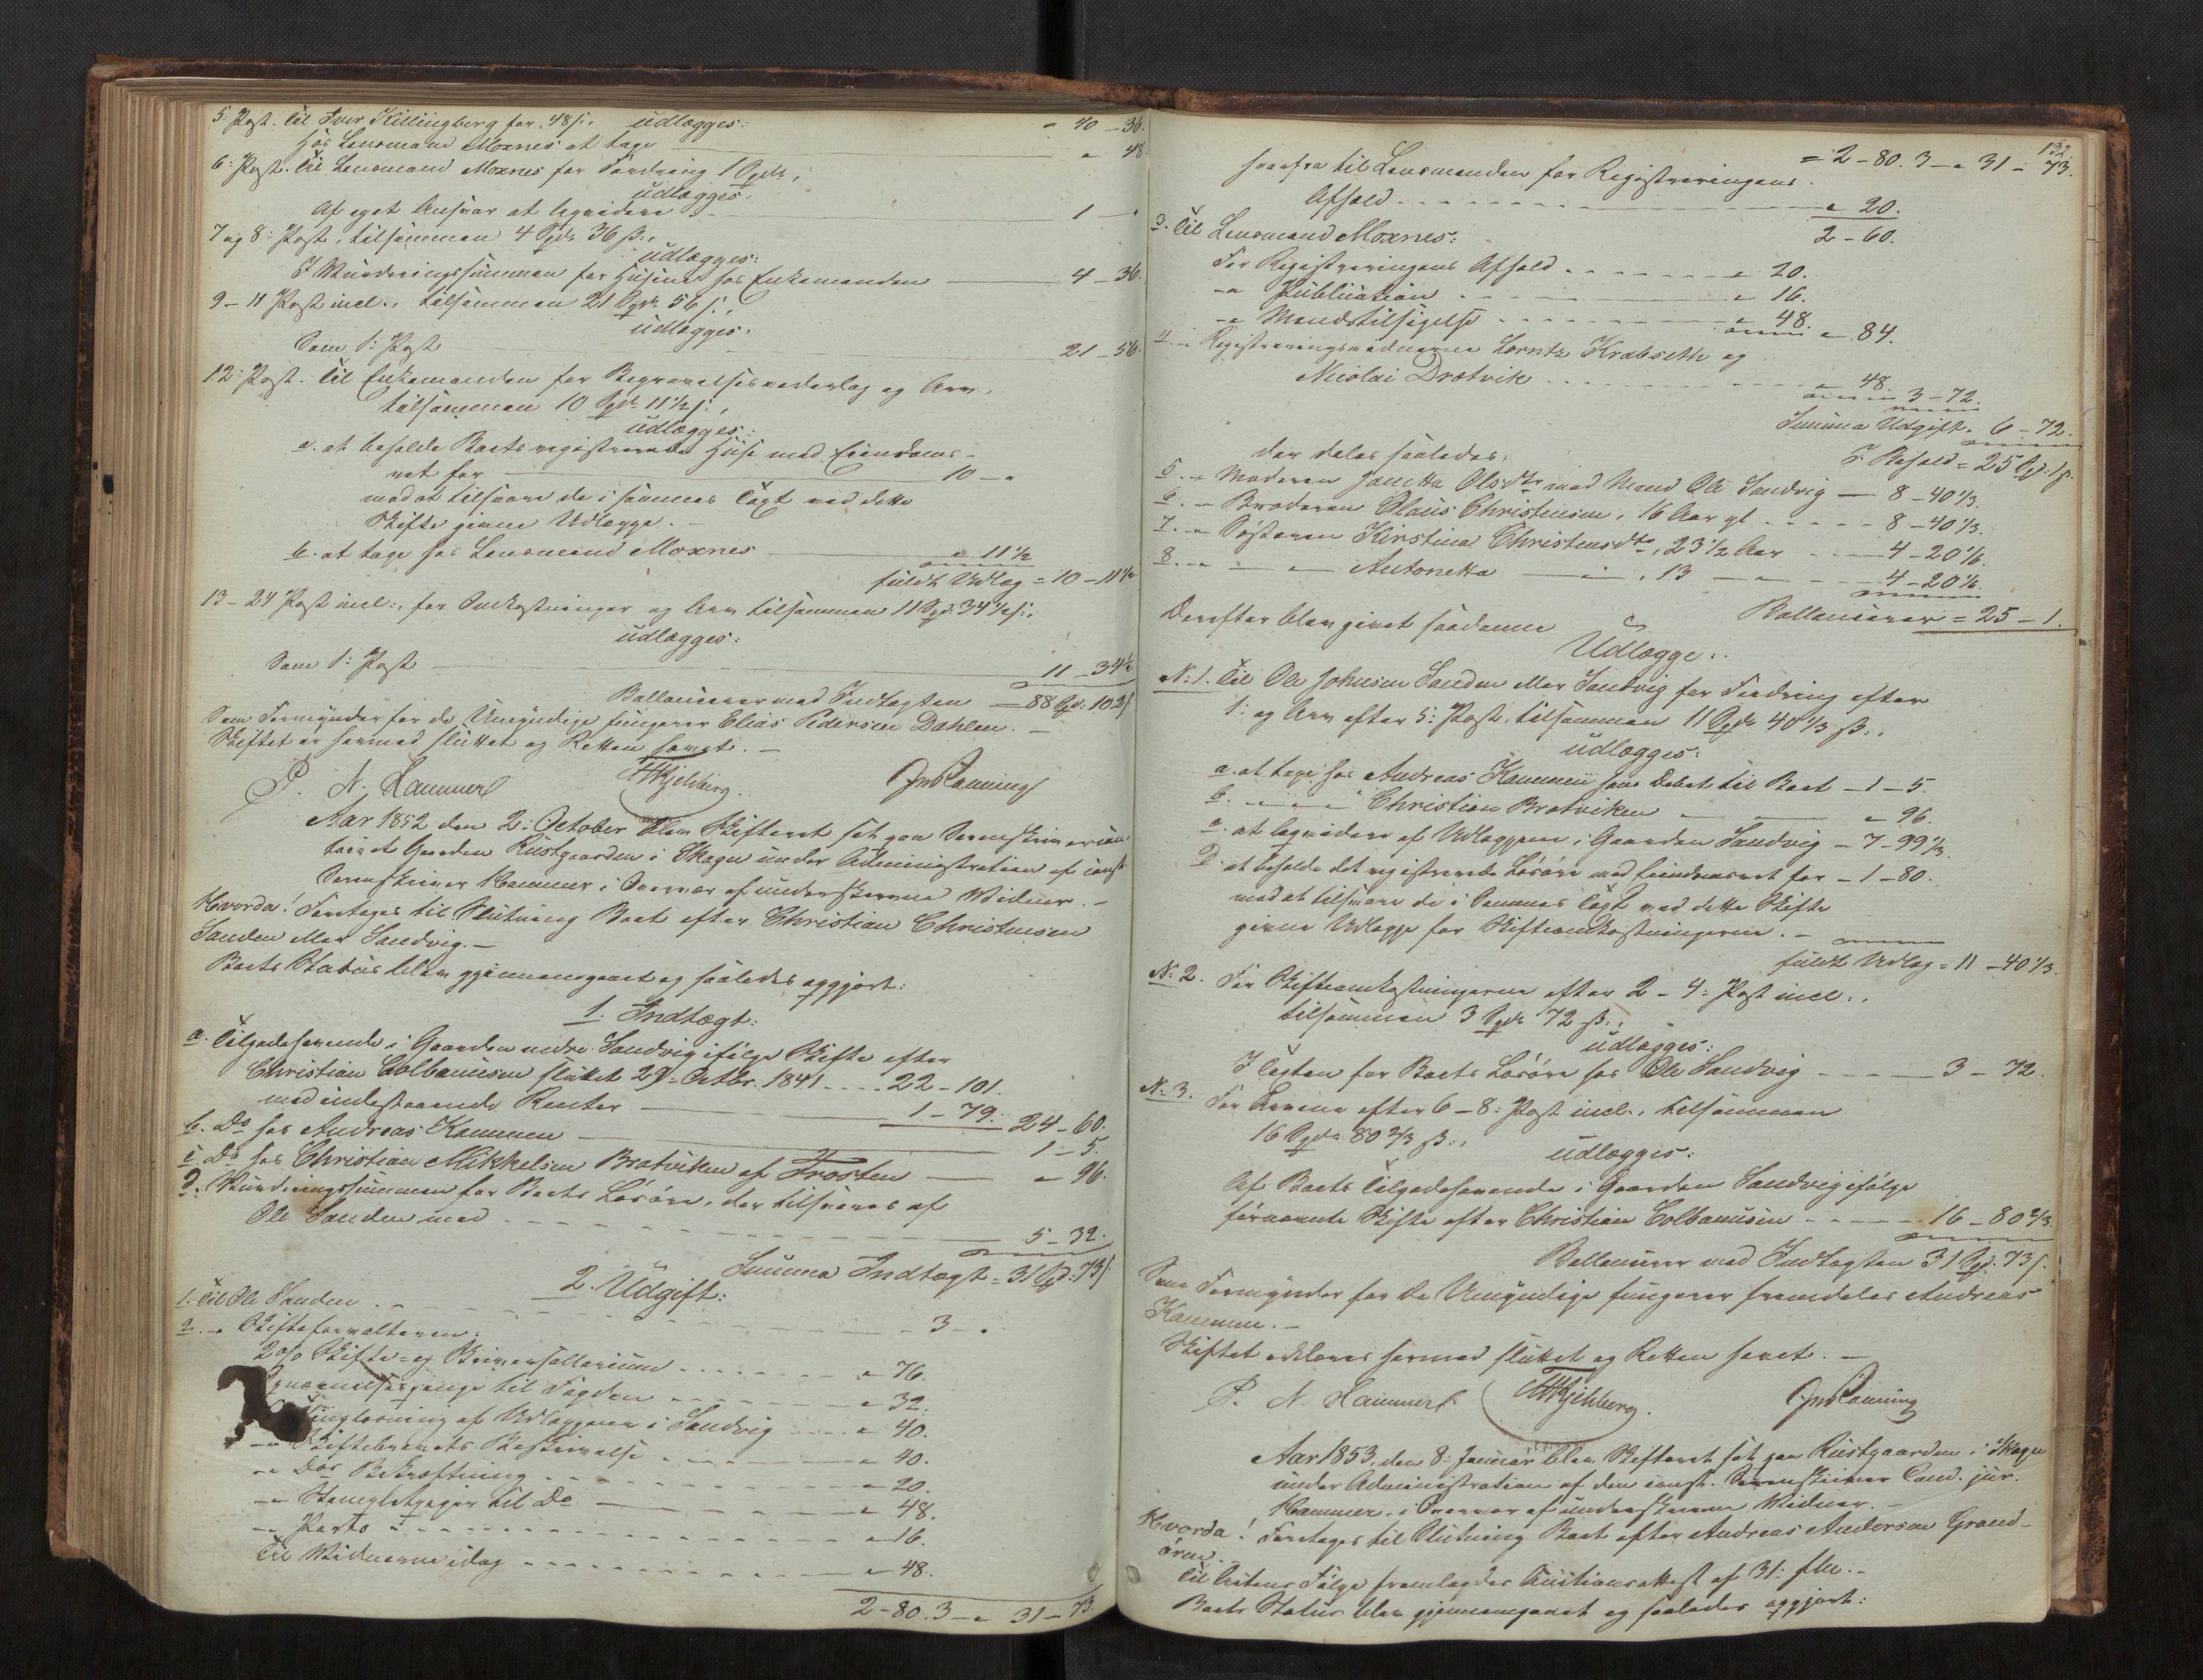 5: Post. Til Iver Killingberg for 48 s:, udlægges: " 40 – 36.
Hos Lensmand Moxnes at tage " 48
6: Post. Til Lensmand Moxnes for Fordring 1 Spd.,
udlægges:
Af eget Ansvar at liqvidere 1 – "
7 og 8: Post, tilsammen 4 Spd. 36 s:,
udlægges:
I Vurderingssummen for Husene hos Enkemanden 4 – 36.
9 – 11 Post incl., tilsammen 21 Spd. 56 s:,
udlægges:
Som 1: Post 21 – 56.
12: Post. Til Enkemanden for Begravelsesvederlag og Arv,
tilsammen 10 Spd. 11½ s:,
udlægges:
a. at beholde Boets registrerede Huse med Eiendoms-
ret for 10 – "
mod at tilsvare de i sammes Taxt ved dette
Skifte givne Udlægge. –
b. at tage hos Lensmand Moxnes " 11½
fuldt Udlæg = 10 – 11½
13 – 24 Post incl:, for Omkostninger og Arv tilsammen 11 Spd. 34½ s:,
udlægges:
Som 1: Post 11 – 34½
Ballancerer med Indtægten = 88 Spd: 102 s
Som Formynder for de Umyndige fungerer Elias Pedersen Dahlen. –
Skiftet er hermed sluttet og Retten hævet. –
P. N. Hammer
Aar 1852 den 2: October blev Skifteret sat paa Sorenskrivercon-
toiret Gaarden Rustgaarden i Skogn under Administration af const
Sorenskriver Hammer i Overvær af underskrevne Vidner. –
Hvorda! Foretages til Slutning Boet efter Christian Christensen
Sanden eller Sandvig. –
Boets Status blev gjennemgaaet og saaledes opgjort:
1. Indtægt:
a. Tilgodehavende i Gaarden nedre Sandvig ifølge Skifte efter
Christian Colbannsen sluttet 27: Octbr. 1841 22 – 101.
med indestaaende Renter 1 – 79. 24 – 60.
b. Do hos Andreas Kammen 1 – 5.
c. Do hos Christian Mikkelsen Bratviken af Frosten " 96.
d. Vurderingssummen for Boets Løsøre, der tilsvares af
Ole Sanden med 5 – 32.
Summa Indtægt = 31 Spd: 73 s
2. Udgift:
1. Til Ole Sanden 3 – "
2. – " Skifteforvalteren:
2 % Skifte- og Skriversallarium " 76.
til Fogden " 32.
Tinglæsning af Udlæggene i Sandvig " 40.
– " Skiftebrevets Beskrivelse " 40.
– " Dos Bekræftning " 20.
– " Stemplet papir til Do " 48.
– " Porto " 16.
Til Vidnerne idag " 48.
2 – 80. 3 – " 31 – 73.
132.
= 2 – 80. 3 – " 31 – 73.
herfra til Lensmanden for Registreringens
Afhold " 20.
2 – 60.
3. Til Lensmand Moxnes:
For Registreringens Afhold " 20.
– " Publication " 16.
– " Mandstilsigelse " 48. " 84.
4. – " Registreringsvidnerne Lorntz Krabseth og
Nicolai Drætvik " 48.
3 – 72.
Summa Udgift = 6 – 72.
I Behold = 25 Spd: 1 s.
der deles saaledes:
5. – " Moderen Janetta Olsdtr med Mand Ole Sandvig 8 – 40⅓.
6. – " Broderen Olaus Christensen, 16 Aar gl 8 – 40⅓.
7. – " Søsteren Kirstina Christensdtr, 23½ Aar 4 – 20⅙.
8. – " – " Antonetta – " , 13 – " 4 – 20⅙.
Ballancerer = 25 – 1.
Derefter blev givet saadanne
Udlægge:
No: 1. Til Ole Johnsen Sanden eller Sandvig for Fordring efter
1: og Arv efter 5: Post, tilsammen 11 Spd. 40⅓ s:,
udlægges:
a. at tage hos Andreas Kammen hans Debet til Boet – 1 – 5.
b. – " – " – " Christian Bratviken – " 96.
c. at liqvidere af Udlæggene i Gaarden Sandvig – 7 – 99⅓.
d. at beholde det registrerede Løsøre med Eiendomsret for – 1 – 80.
mod at tilsvare de i Sammes Taxt ved dette Skifte
givne Udlægge for Skifteomkostningerne. –
fuldt Udlæg = 11 – 40⅓.
No: 2. For Skifteomkostningerne efter 2 – 4: Post incl:,
tilsammen 3 Spd. 72 s:,
udlægges:
I Taxten for Boets Løsøre hos Ole Sandvig 3 – 72.
No. 3. For Arvene efter 6 – 8: Post incl., tilsammen
16 Spd. 80⅔ s:, udlægges:
Af Boets Tilgodehavende i Gaarden Sandvig ifølge
førnævnte Skifte efter Christian Colbannsen 16 – 80⅔.
Ballancerer med Indtægten 31 Spd. 73 s.
Som Formynder for de Umyndige fungerer fremdeles Andreas
Kammen. –
Skiftet erklæres hermed sluttet og Retten hævet. –
P. N. Hammer.
Aar 1853, den 8: Januar blev Skifteret sat paa Rustgaarden i Skogn
under Administration af den const. Sorenskriver Cand. jur.
Hammer, i Overvær af underskrevne Vidner. –
Hvorda! Foretages til Slutning Boet efter Andreas Andersen Grand-
øren. –
Til Actens Følge fremlagdes Auctionsattest af 31: f.M. –
Boets Status blev gjennemgaaet og saaledes opgjort: